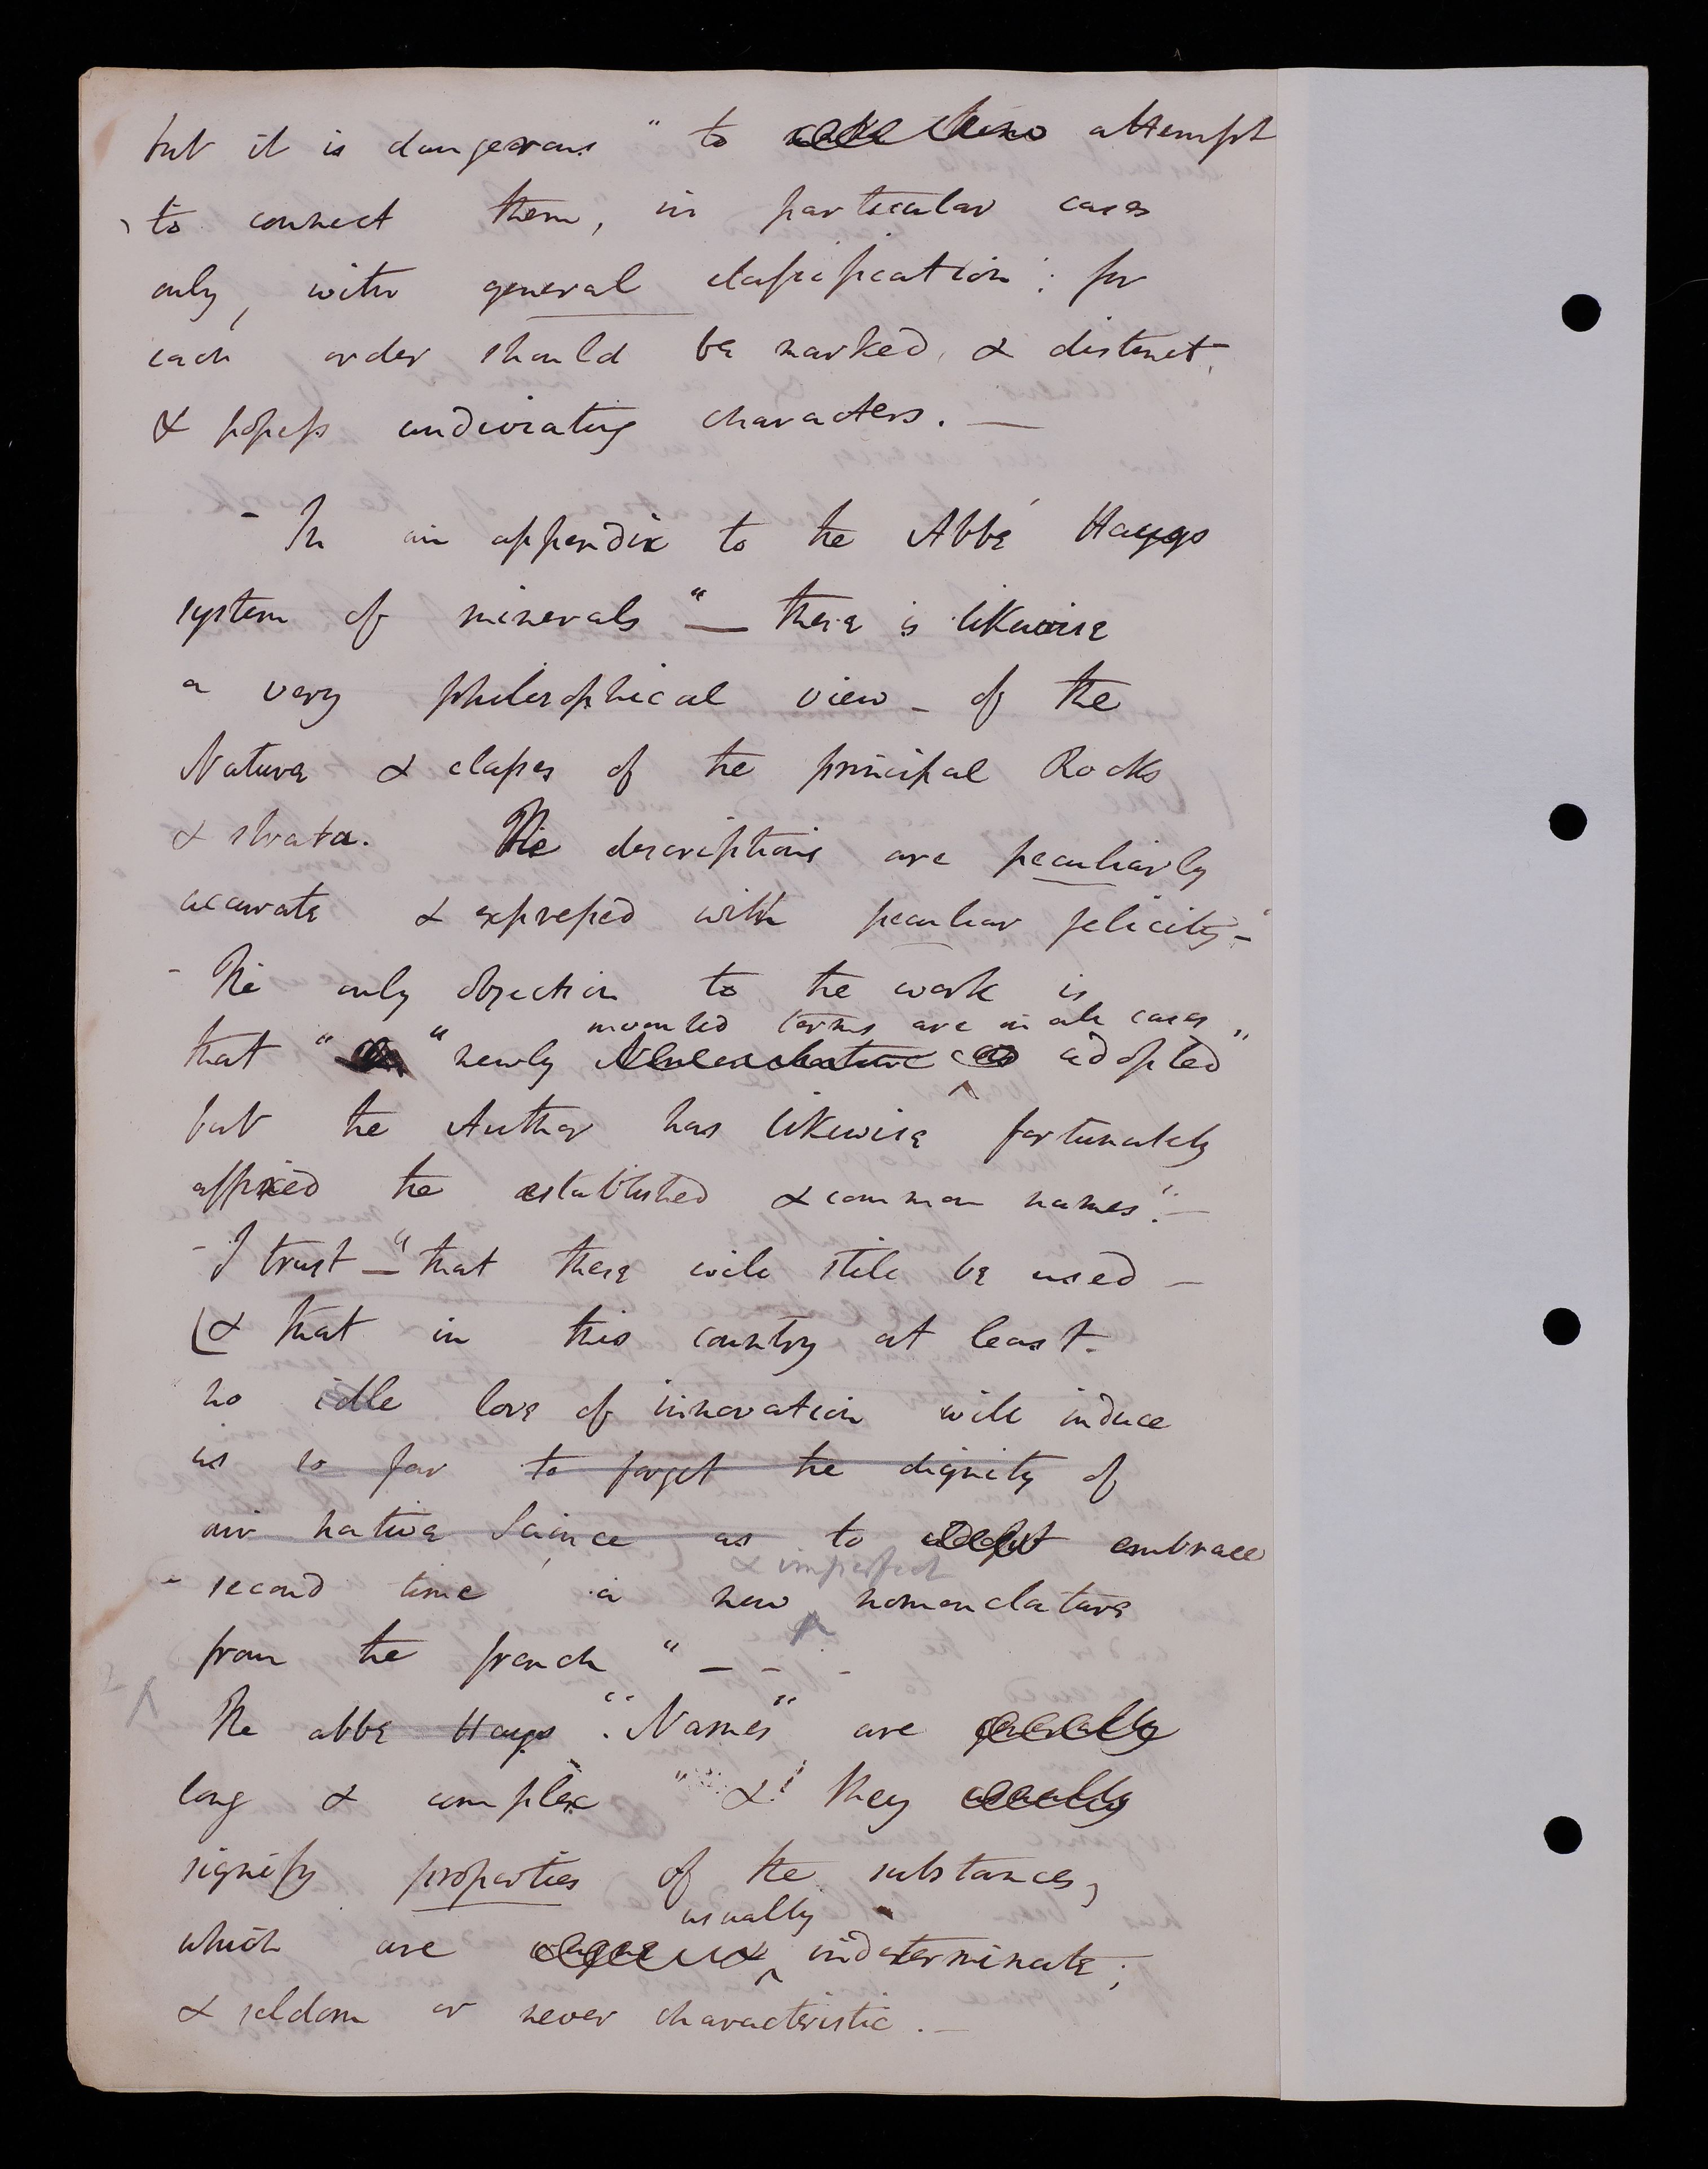 but it is dangerous " to attempt
to connect them, in particular cases
only, with general classification: for
each order should be marked, & distinct,
& possess undiviating characters. —
- In an appendix to the Abbé Hauys
system of minerals "— there is likewise
a very philosophical view - of the
Nature & classes of the principal Rocks
& strata. The descriptions are peculiarly
accurate & expressed with peculiar felicity -"
- The only objection to the work is
invented terms are in all cases
that " " newly Nomenclature adopted"
but the Author has likewise fortunately
affixed the established & common names". —
- I trust —" that these will still be used —
(& that in this country at least.
no idle love of innovation will induce
us so far to forget the dignity of
our native Science as to adopt embrace
& imperfect
- second time a new nomenclature
from the french " — - -
The abbe Hauys "Names" are generally
long & complex " & they usually
signify properties of the substances,
usually
which are vague & indeterminate;
& seldom or never characteristic. —